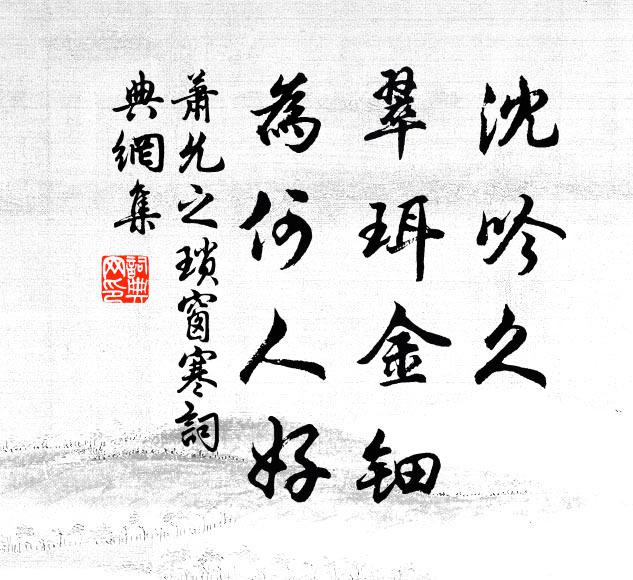 沈吟久
翠珥金鈿
為何人好
蕭允之瑣窗寒詞
典網集
詞典網印